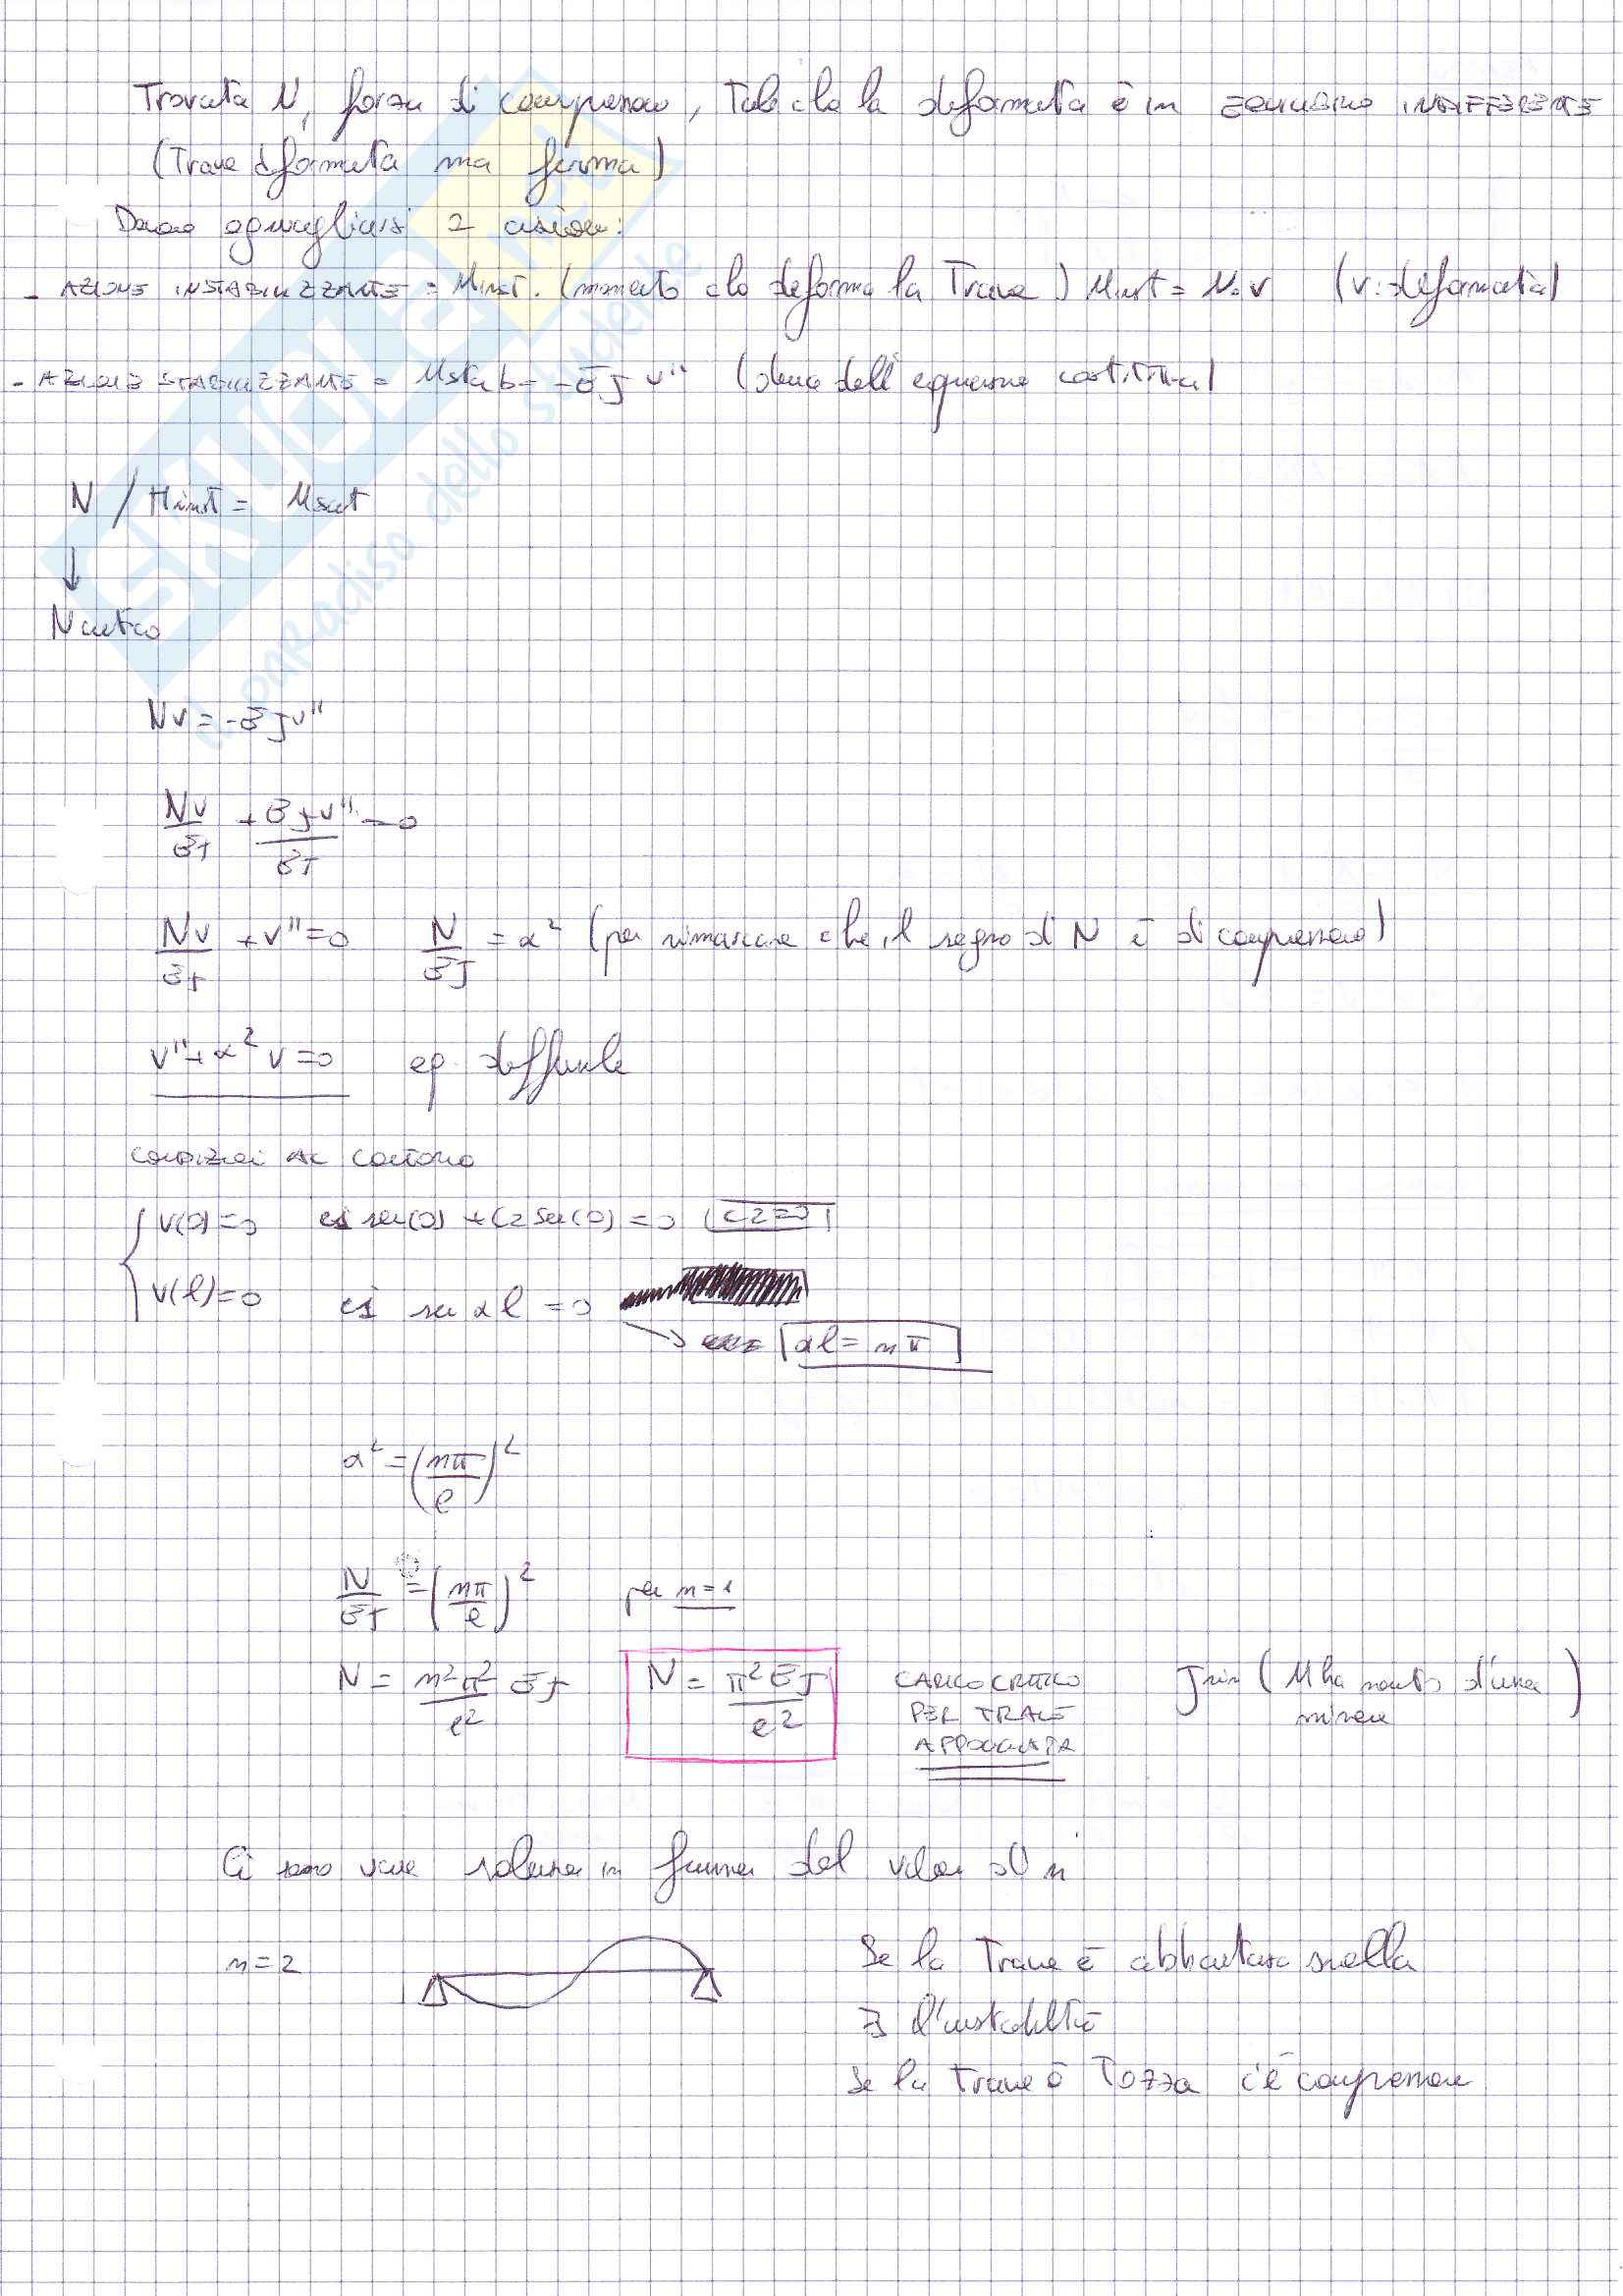 Trovata N, forza di compressione, Tale che la deformata è in EQUILIBRIO INDIFFERENTE
(Trave deformata ma ferma)
Devono eguagliarsi 2 azioni:
- AZIONE INSTABILIZZANTE = Minst. (momento che deforma la Trave) Minst = N·v (v: deformata)
- AZIONE STABILIZZANTE = Mstab = -EJ v'' (dell'equazione costitutiva)
N / Minst = Mstab
↓
Ncritico
Nv = -EJv''
Nv/EJ + EJv''/EJ = 0
Nv/EJ + v'' = 0 N/EJ = α² (per rimarcare che il segno di N è di compressione)
v'' + α² v = 0 eq. differenziale
CONDIZIONI AL CONTORNO
v(0)=0 c1 sen(0) + c2 sen(0) = 0 c2=0
v(l)=0 c1 sen αl = 0
→ αl = nπ
α² = (nπ/l)²
N/EJ = (nπ/l)² per n=1
N = n²π²/l² EJ N = π²EJ/l² CARICO CRITICO Jmin (M ha momento d'inerzia
PER TRAVE minore)
APPOGGIATA
Ci sono varie soluzioni in funzione del valore di n
n=2 Se la Trave è abbastanza snella
∃ l'instabilità
Se la Trave è Tozza c'è compressione
SKUOLA.net
il paradiso dello studente